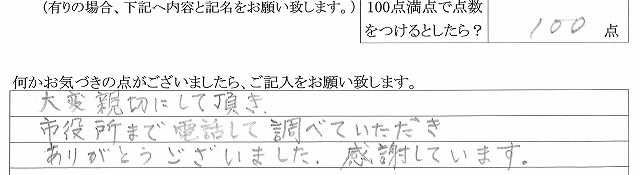 (有りの場合、下記へ内容と記名をお願い致します。)
100点満点で点数
をつけるとしたら？
100 点
何かお気づきの点がございましたら、ご記入をお願い致します。
大変親切にして頂き
市役所まで電話して調べていただき
ありがとうございました. 感謝しています。